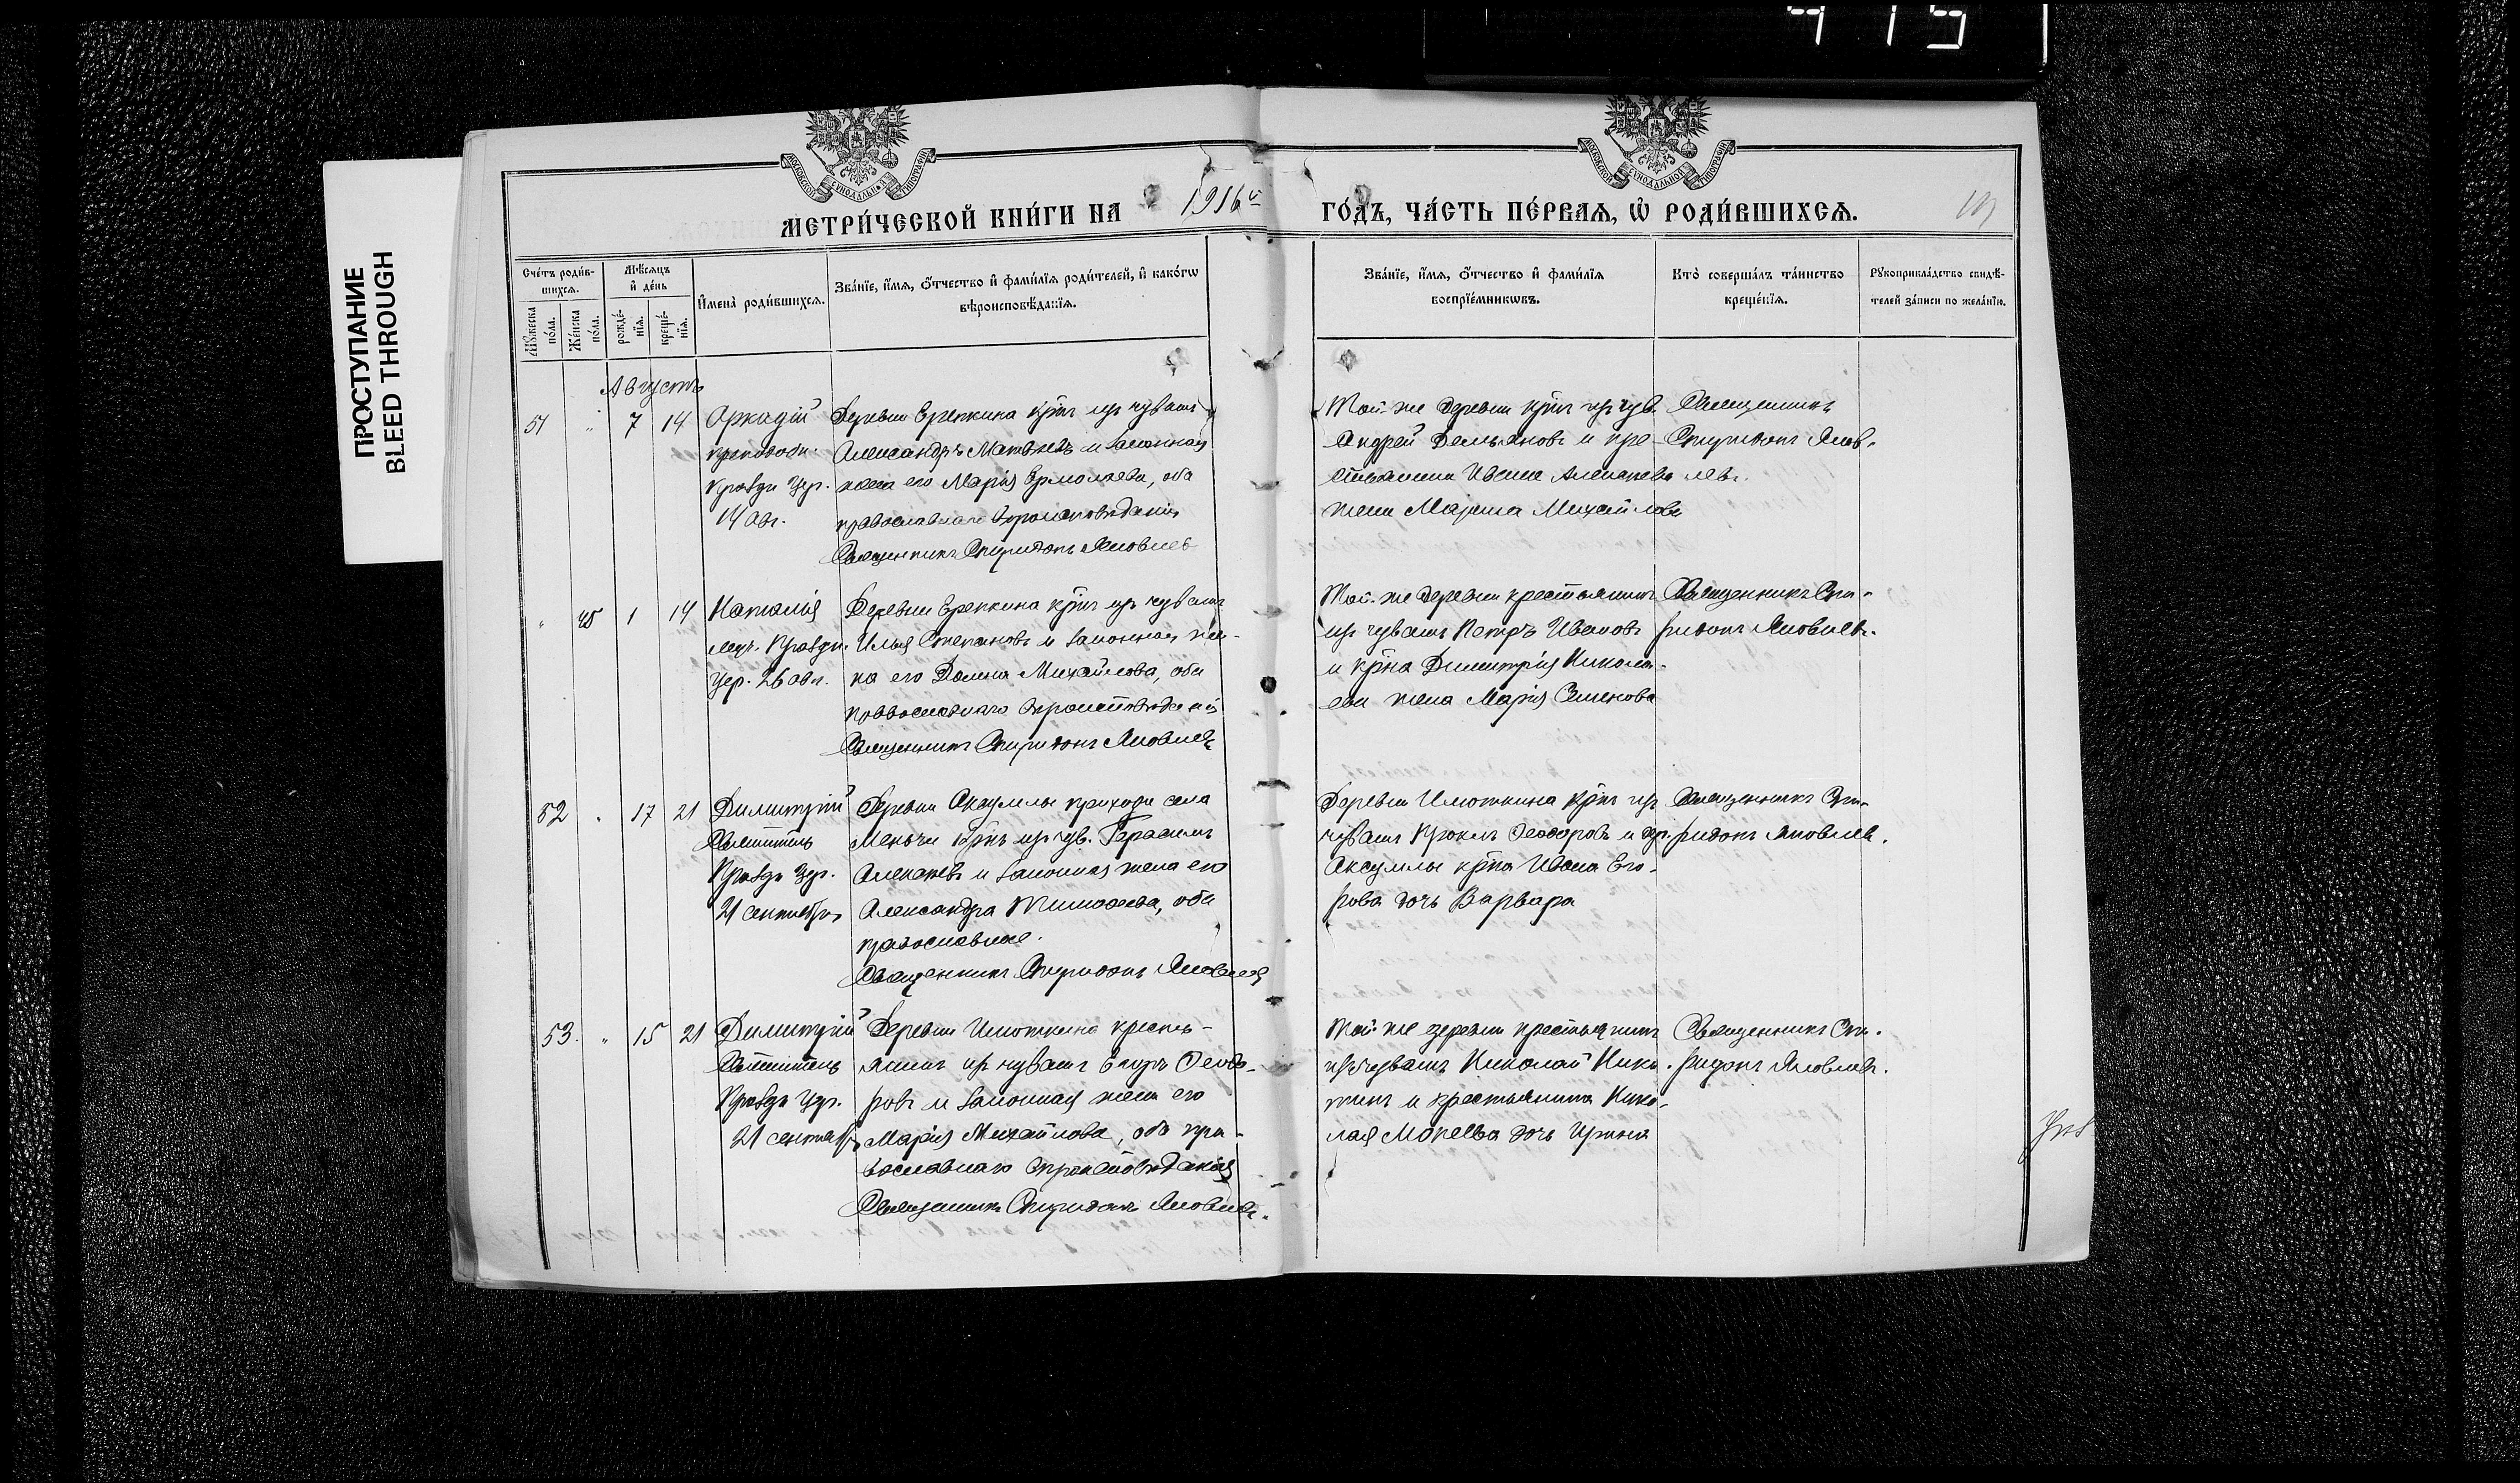 419
ПРОСТУПАНИЕ
BLEED THROUGH
МОСКОВСКОЙ СѴНОДАЛЬНОЙ ТИПОГРАФІИ
МОСКОВСКОЙ СѴНОДАЛЬНОЙ ТИПОГРАФІИ
МЕТРИ́ЧЕСКОЙ КНИ́ГИ НА 1916 й
ГО́ДЪ, ЧА́СТЬ ПЕ́РВАѦ, Ѡ҆ РОДИ́ВШИХСѦ.
Сче́тъ роди́в-
шихсѧ.
Мꙋ́жеска по́ла.
Же́нска по́ла.
Мѣ́сѧцъ
и҆ де́нь
рожде́-
нїѧ.
креще́-
нїѧ.
И҆мена̀ роди́вшихсѧ.
Зва́нїе, и҆́мѧ, ѻ҆́тчество и҆ фами́лїѧ роди́телей, и҆ како́гѡ
вѣроисповѣ́данїѧ.
Зва́нїе, и҆́мѧ, ѻ҆́тчество и҆ фами́лїѧ
воспрїе́мникѡвъ.
Кто̀ соверша́лъ та́инство
креще́нїѧ.
Рꙋкоприкла́дство свидѣ́-
телей за́писи по жела́нїю.
Августъ
51 " 7 14
Аркадій
преподобн.
Праздн. Цер.
14 авг.
Деревни Ерепкина крнъ изъ чувашъ
Александръ Матвѣевъ и законная
жена его Марія Ермолаева, оба
православнаго вѣроисповѣданія
Священникъ Спиридонъ Яковлев
Той-же деревни крнъ изъ чув.
Андрей Демьяновъ и кре-
стьянина Ивана Алексѣева
жена Марина Михайлова
Священникъ
Спиридонъ Яков-
левъ.
" 45 1 14
Наталія
муч. Праздн.
Цер. 26 авг.
Деревни Ерепкина крнъ изъ чувашъ
Илья Степановъ и законная же-
на его Домна Михайлова, оба
православнаго вѣроисповѣданія
Священникъ Спиридонъ Яковлевъ
Той-же деревни крестьянинъ
изъ чувашъ Петръ Ивановъ
и крна Димитрія Никола-
ева жена Марія Семенова
Священникъ Спи-
ридонъ Яковлевъ.
52 " 17 21
Димитрій
Святитель
Праздн Цер.
21 сентября
Деревни Аксумлы прихода села
Меньчи крнъ изъ чув. Герасимъ
Алексѣевъ и законная жена его
Александра Тимофеева, оба
православные.
Священникъ Спиридонъ Яковлевъ
Деревни Имоткина крнъ изъ
чувашъ Проклъ Ѳеодоровъ и др.
Аксумлы крна Ивана Его-
рова дочь Варвара
Священникъ Спи-
ридонъ Яковлев.
53. " 15 21
Димитрій
Святитель
Праздн Цер.
21 сентября
Деревни Имоткина кресть-
янинъ изъ чувашъ Егоръ Ѳеодо-
ровъ и законная жена его
Марія Михайлова, оба пра-
вославнаго вѣроисповѣданія
Священникъ Спиридонъ Яковлевъ.
Той-же деревни крестьянинъ
изъ чувашъ Николай Ники-
тинъ и крестьянина Нико-
лая Мокеева дочь Ирина
Священникъ Спи-
ридонъ Яковлевъ.